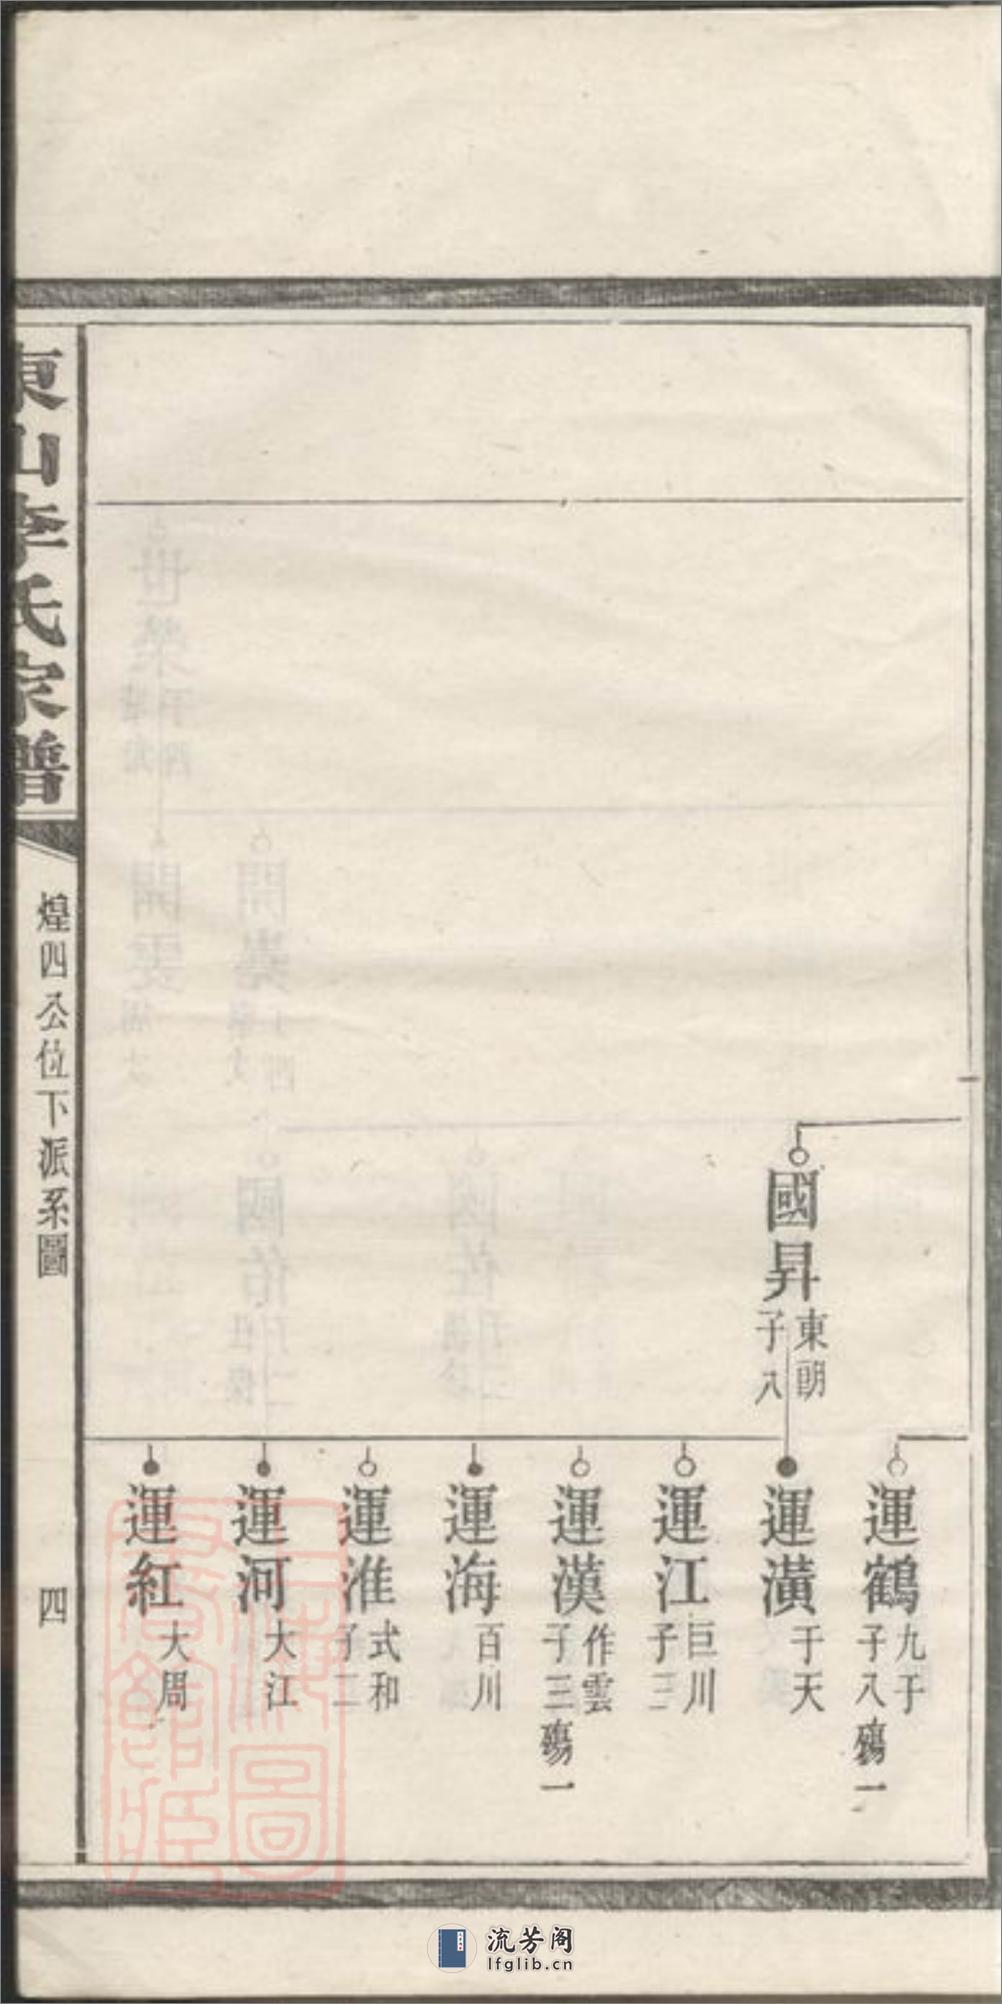 國昇
東朗
子八
運鶴
九于
子八殤一
運潢
于天
運江
巨川
子三
運漢
作雲
子三殤一
運海
百川
運淮
式和
子二
運河
大江
運紅
大周
東山李氏家譜
煌四公位下派系圖
四
上海圖書館藏
流芳阁
lfglib.cn